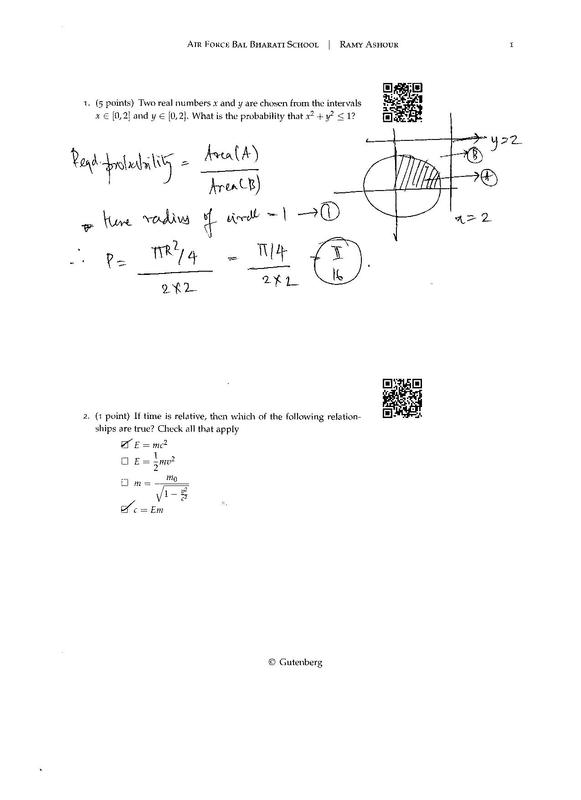 AIR FORCE BAL BHARATI SCHOOL | RAMY ASHOUR 1
1. (5 points) Two real numbers x and y are chosen from the intervals
x ∈ [0,2] and y ∈ [0,2]. What is the probability that x² + y² ≤ 1?
Reqd. probability = Area(A) / Area(B)
y=2
B
A
x=2
Here radius of circle = 1 → ①
∴ P = πR²/4 / 2×2 = π/4 / 2×2 = π/16.
2. (1 point) If time is relative, then which of the following relation-
ships are true? Check all that apply
☑ E = mc²
☐ E = 1/2 mv²
☐ m = m₀ / √(1 − v²/c²)
☑ c = Em
© Gutenberg